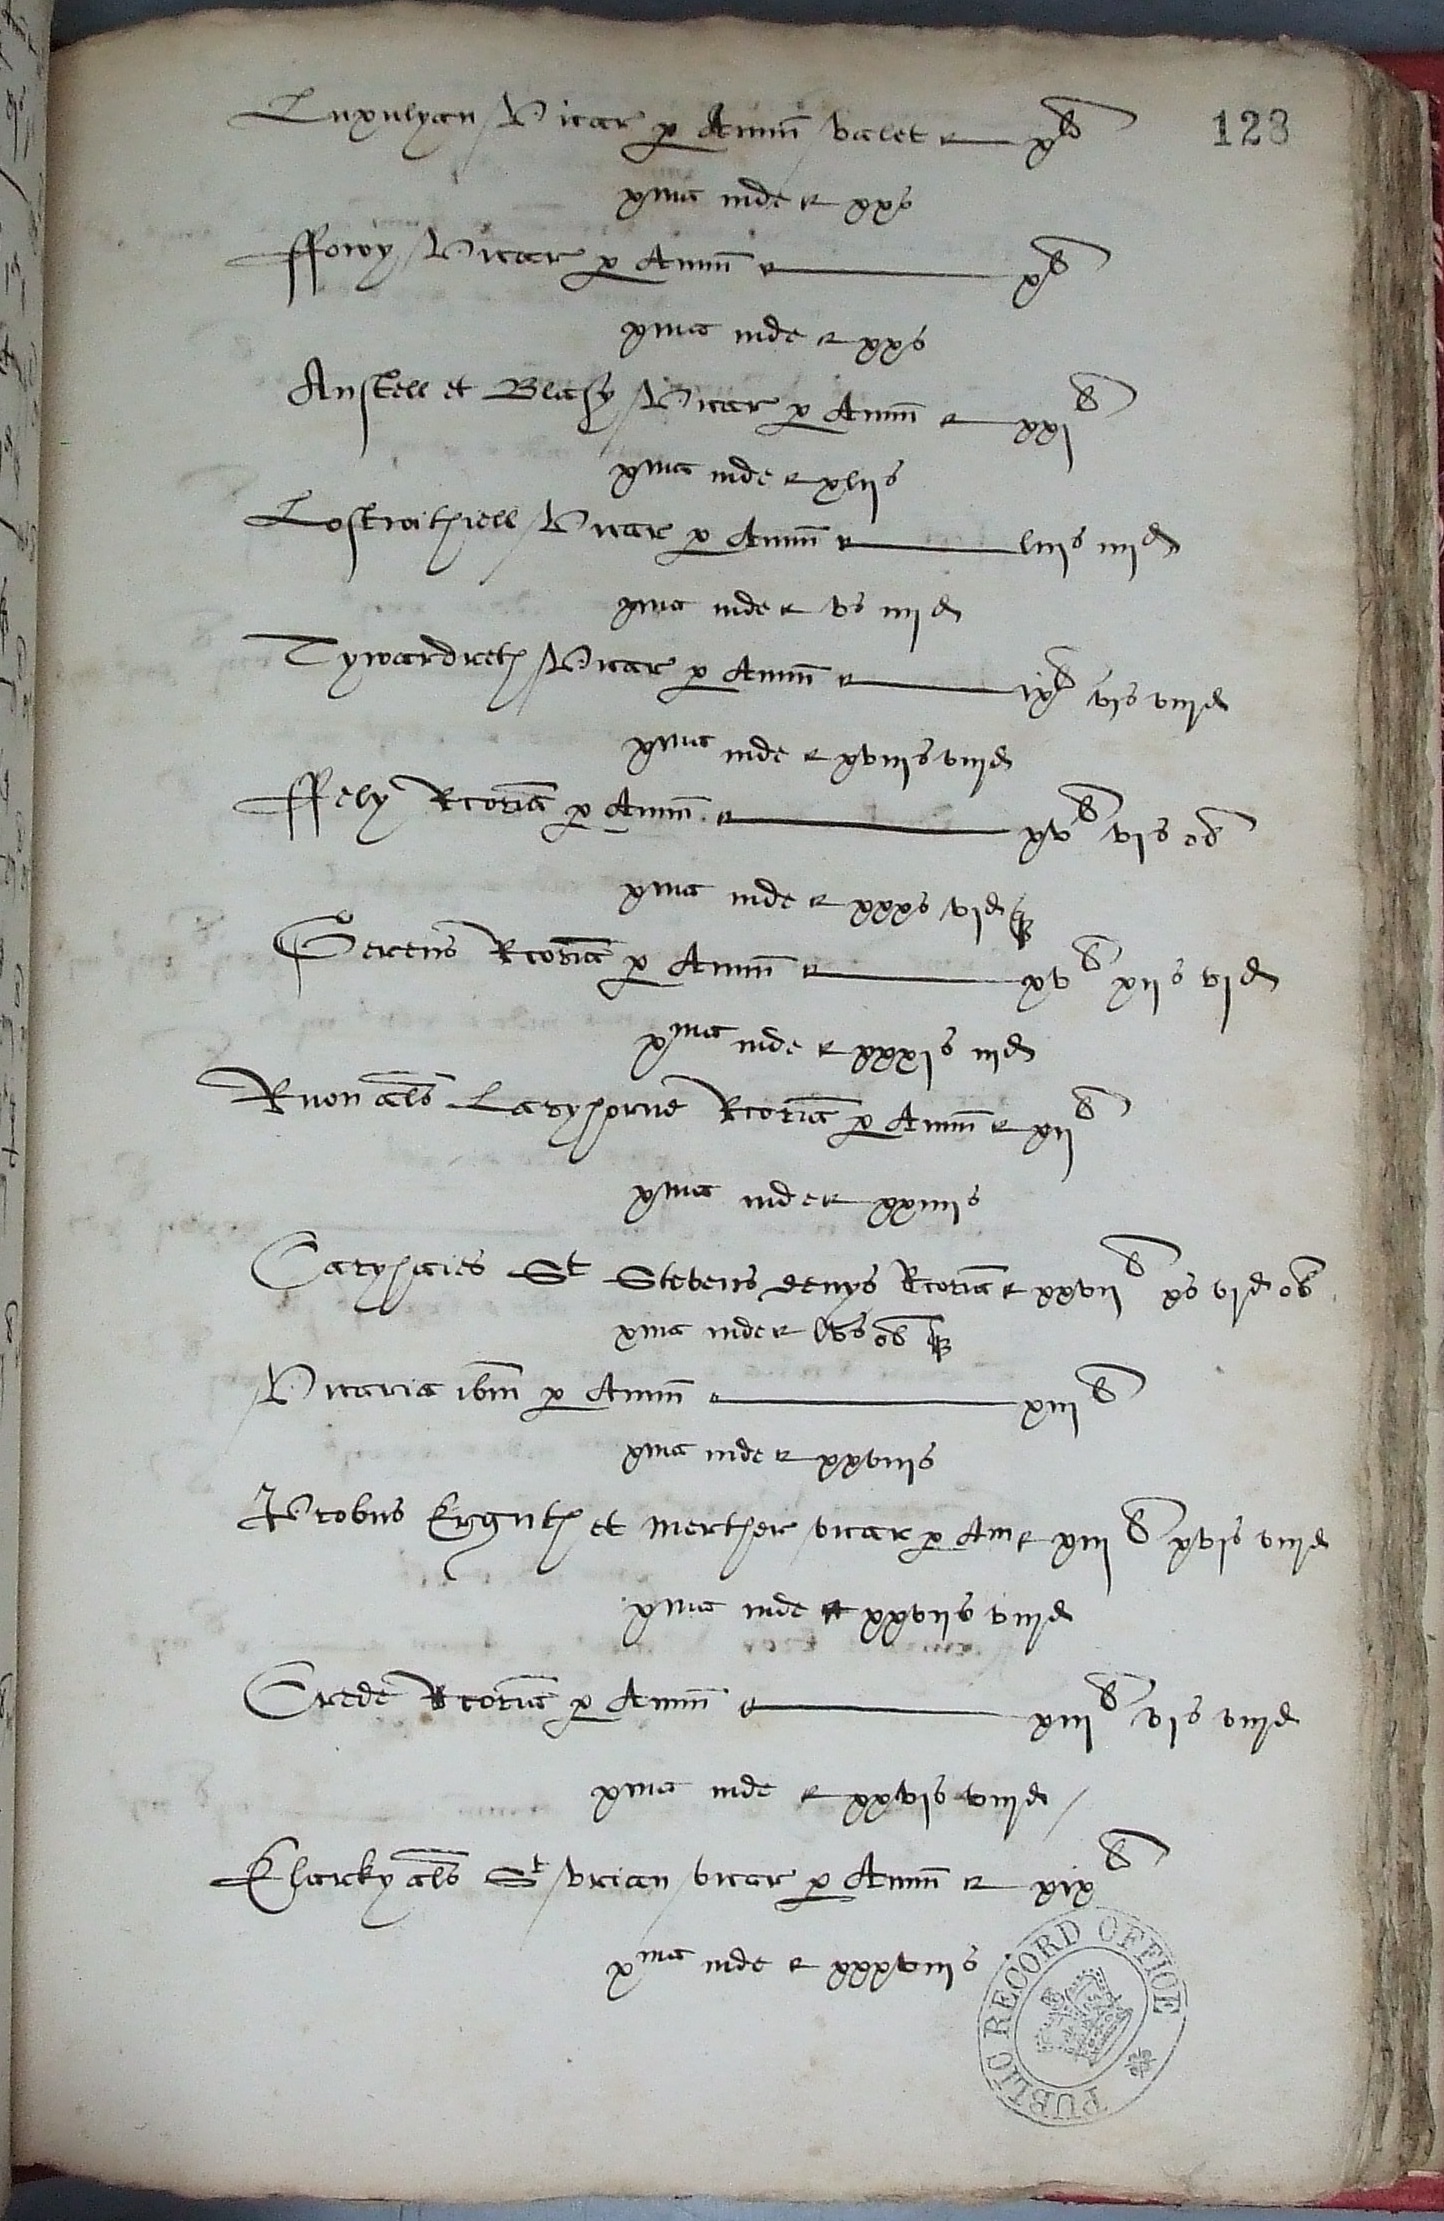 Luxulyan Vicar p Annũ valet — xli
123
xma inde — xxs
ffowy Vicar p Annũ — xli
xma inde — xxs
Austell et Blasy Vicar p Annũ — xxjli
xma inde — xlijs
Lostwithiell Vicar p Annũ — liijs iiijd
xma inde — vs iiijd
Tywardreth Vicar p Annũ — ixli vjs viijd
xma inde — xviijs viijd
ffely Rcoria p Annũ — xvli vjs ob
xma inde — xxxs vijd
Gerens Rcoria p Annũ — xvli xijs vjd
xma inde — xxxjs iijd
Ruon als Laryhorne Rcoria p Annũ — xijli
xma inde — xxiiijs
Caryhaies St Stevens denys Rcoria — xxvijli xs vjd ob
xma inde — lvs ob
Vicaria ibm p Annũ — xiiijli
xma inde — xxviijs
Probus et Merther vicar p Ann — xiijli xvjs viijd
xma inde — xxvijs viijd
Crede Rcoria p Annũ — xiijli vjs viijd
xma inde — xxvjs viijd
Elarky als St Vrian vicar p Annũ — xixli
xma inde — xxxviijs
PUBLIC RECORD OFFICE